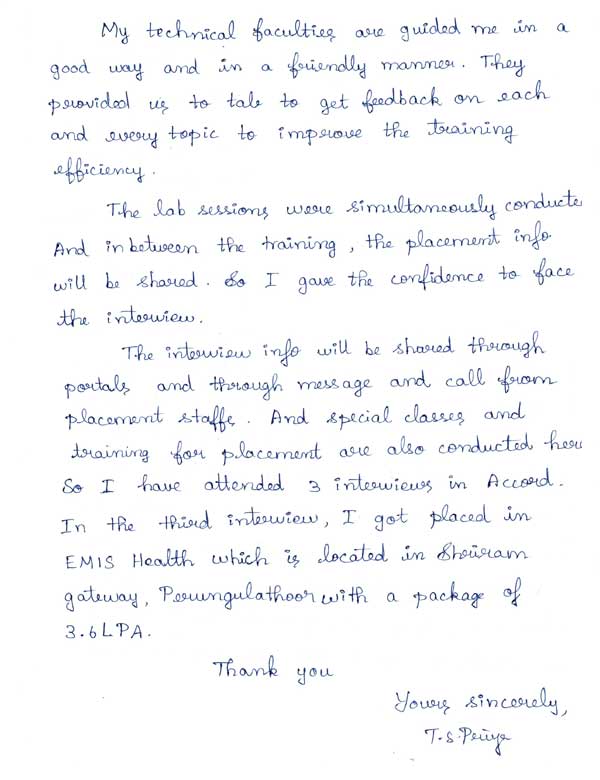 My technical faculties are guided me in a
good way and in a friendly manner. They
provided us to tab to get feedback on each
and every topic to improve the training
efficiency.
The lab sessions were simultaneously conducte
And inbetween the training, the placement info
will be shared. So I gave the confidence to face
the interview.
The interview info will be shared through
portals and through message and call from
placement staffs. And special classes and
training for placement are also conducted here
So I have attended 3 interviews in Accord.
In the third interview, I got placed in
EMIS Health which is located in Shriram
gateway, Perungulathoor with a package of
3.6LPA.
Thank you
Yours sincerely,
T.S.Priya